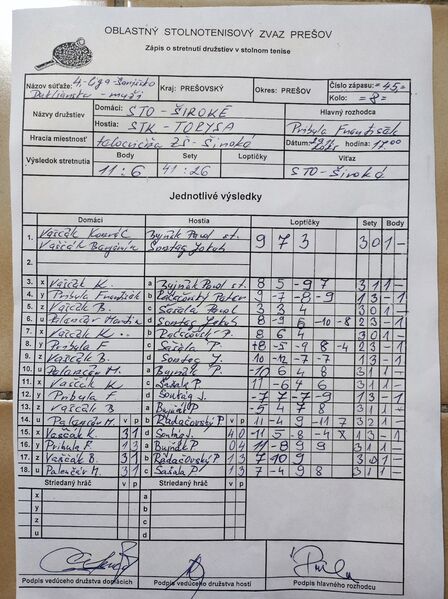 OBLASTNÝ STOLNOTENISOVÝ ZVAZ PREŠOV
Zápis o stretnutí družstiev v stolnom tenise
Názov súťaže: 4. liga - Šarišsko Dukliansko - muži
Kraj: PREŠOVSKÝ
Okres: PREŠOV
Číslo zápasu: =45,=
Kolo: =8=
Názvy družstiev
Domáci: STO - ŠIROKÉ
Hostia: STK - TORYSA
Hlavný rozhodca
Pribula František
Hracia miestnosť
telocvičňa ZŠ - Široké
Dátum:
hodina: 17.00
Výsledok stretnutia
Body
11:6
Sety
41:26
Loptičky
Víťaz
STO - Široké
Jednotlivé výsledky
Domáci Hostia Loptičky Sety Body
1. Vaščák Bujňák Pavol st. 9 7 3 3 0 1 -
Vaščák Sontag Jakub
2.
3. x Vaščák K. a Bujňák Pavol st. 8 5 -9 7 3 1 1 -
4. y Pribula František b Peter 9 -7 -8 -9 1 3 - 1
5. z Vaščák B. c Sašala Pavol 3 3 4 3 0 1 -
6. u Palenčár Martin d Sontag Jakub 8 -9 6 -10 -8 2 3 - 1
7. x Vaščák K. b P. 8 6 4 3 0 1 -
8. y Pribula F. c Sašala P. -8 -5 -9 8 -4
9. z Vaščák B. d Sontag J. 10 -12 -7 -7 1 3 - 1
10. u Palenčár M. a Bujňák P. -10 6 4 8 3 1 1 -
11. x Vaščák K. c Sašala P. 11 -6 4 6 3 1 1 -
12. y Pribula F. d Sontag J. -7 7 -7 -9 1 3 - 1
13. z Vaščák B. a Bujňák P. -5 4 7 8 3 1 1 -
14. u Palenčár M. v p b Radačovský P. v p 11 -4 9 -11 7 3 2 1 -
15. x Vaščák K. 3 1 d Sontag J. 4 0 -11 5 -8 -4 x 1 3 - 1
16. y Pribula F. 1 3 a Bujňák P. 0 4 11 -8 9 9 3 1 1 -
17. z Vaščák B. 3 1 b Radačovský P. 1 3 7 10 9 3 0 1 -
18. u Palenčár M. 3 1 c Sašala P. 1 3 7 -4 9 8 3 1 1 -
Striedaný hráč v p Striedaný hráč v p
x a
y b
z c
u d
Podpis vedúceho družstva domácich
Podpis vedúceho družstva hostí
Podpis hlavného rozhodcu